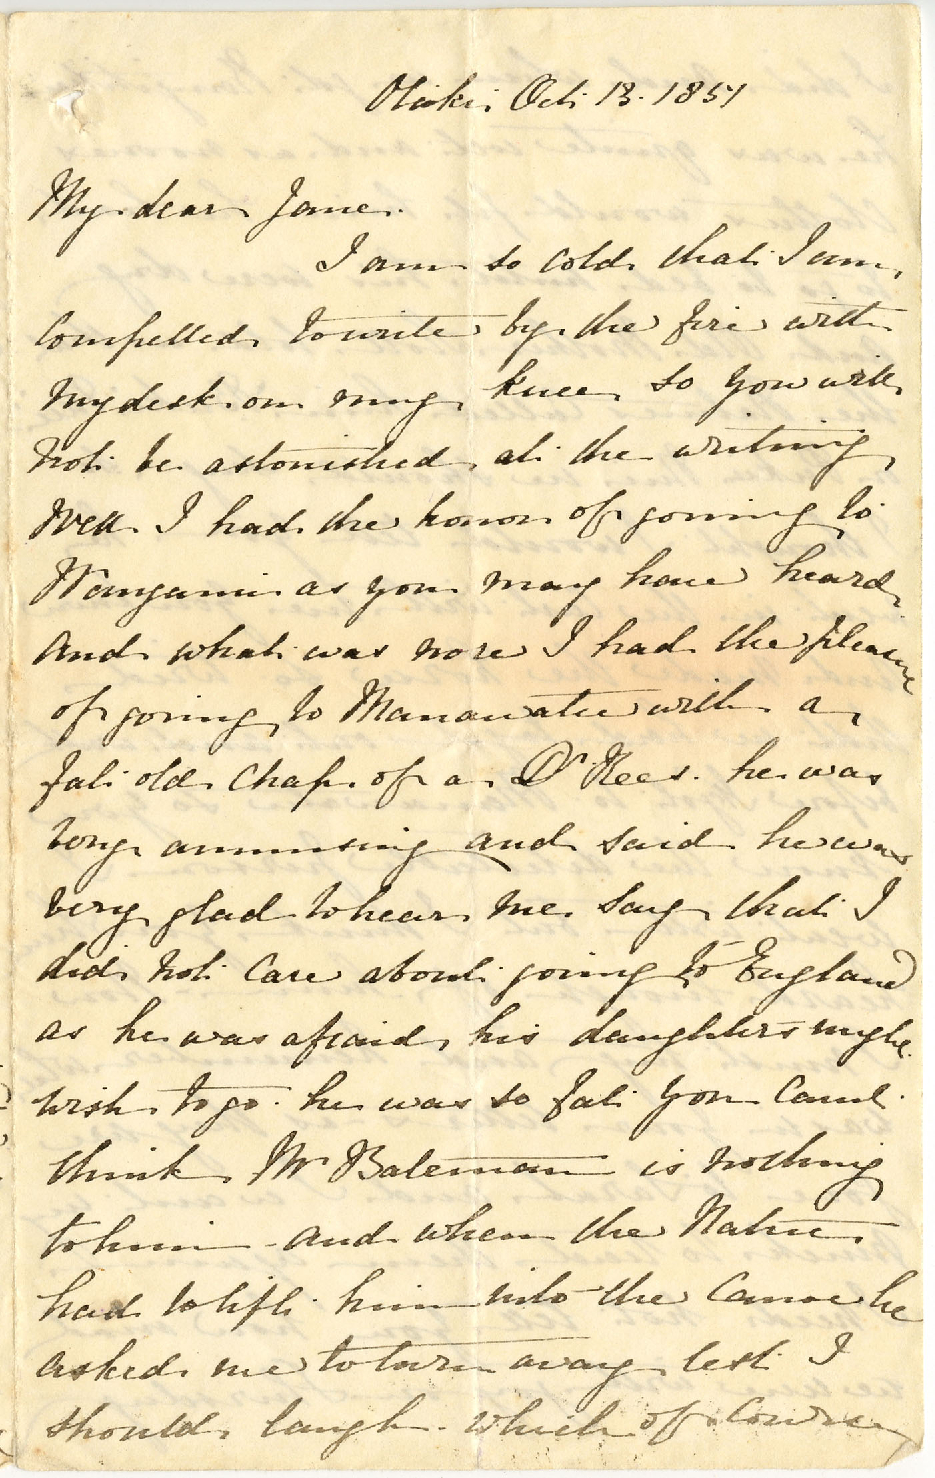 Otaki. Oct. 13. 1851
My dear Jane.
I am so cold that I am
compelled to write by the fire with
my desk on my knee so you will
not be astonished at the writing
Well I had the honor of going to
Wanganui as you may have heard
and what was more I had the pleasure
of going to Manawatu with a
fat old chap of a Dr Rees. he was
very ammusing and said he was
very glad to hear me say that I
did not care about going to England
as he was afraid his daughters might
wish to go. he was so fat you cant
think Mr Bateman is nothing
to him and when the Natives
had to lift him into the Canoe he
asked me to turn away lest I
should laugh. which of course